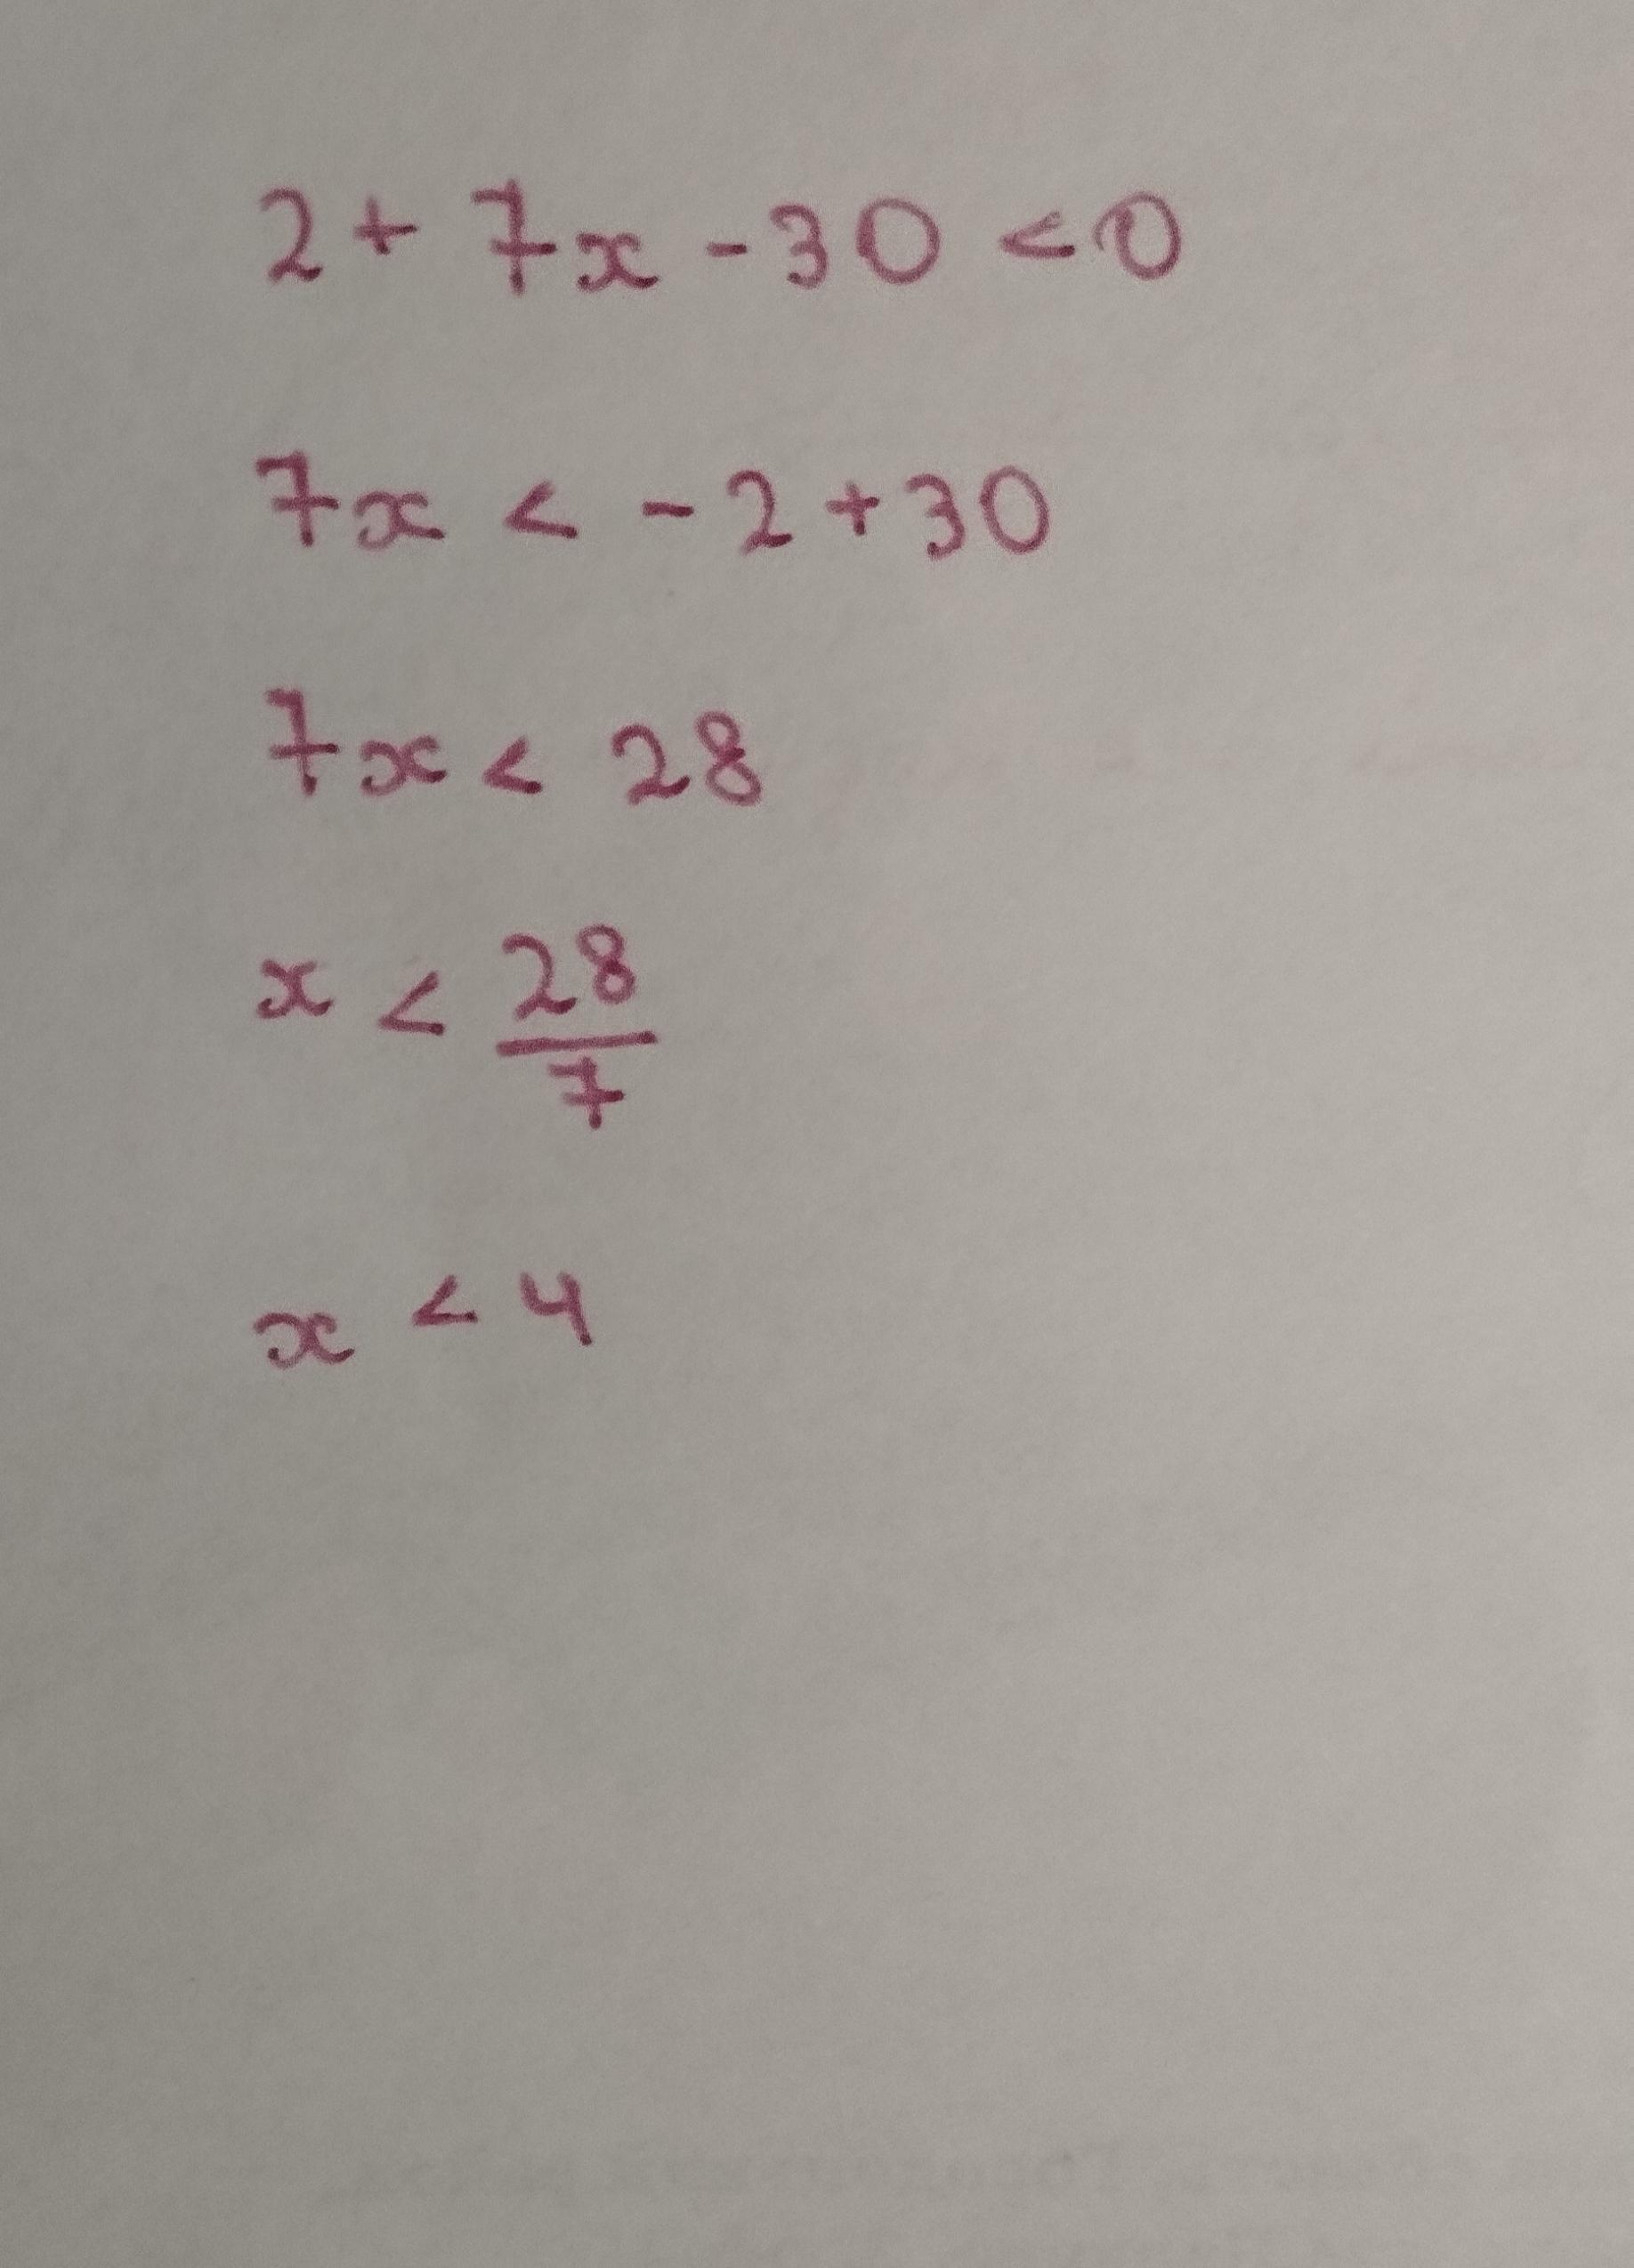 2 + 7x - 30 < 0
7x < - 2 + 30
7x < 28
x < 28/7
x < 4